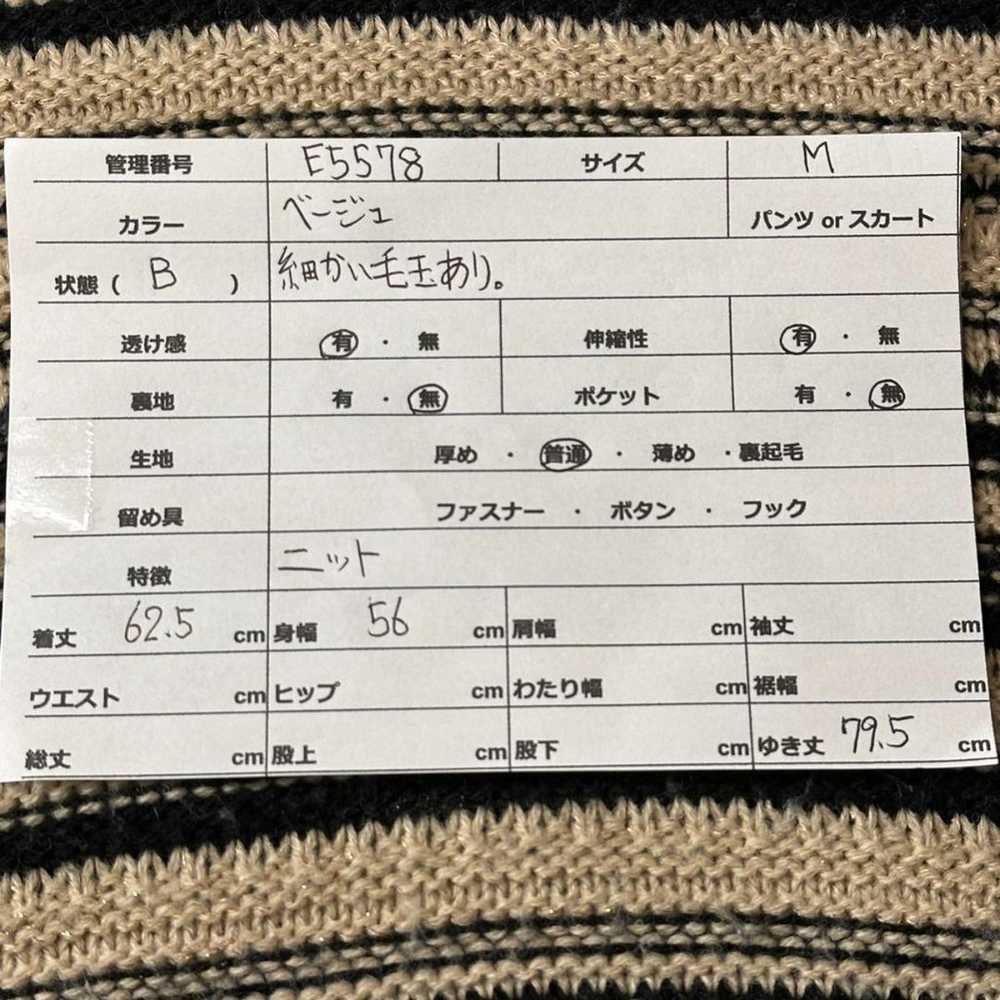 管理番号 E5578 サイズ M
カラー ベージュ パンツ or スカート
状態 ( B ) 細かい毛玉あり。
透け感 有 ・ 無 伸縮性 有 ・ 無
裏地 有 ・ 無 ポケット 有 ・ 無
生地 厚め ・ 普通 ・ 薄め ・裏起毛
留め具 ファスナー ・ ボタン ・ フック
特徴 ニット
着丈 62.5 cm 身幅 56 cm 肩幅 cm 袖丈 cm
ウエスト cm ヒップ cm わたり幅 cm 裾幅 cm
総丈 cm 股上 cm 股下 cm ゆき丈 79.5 cm